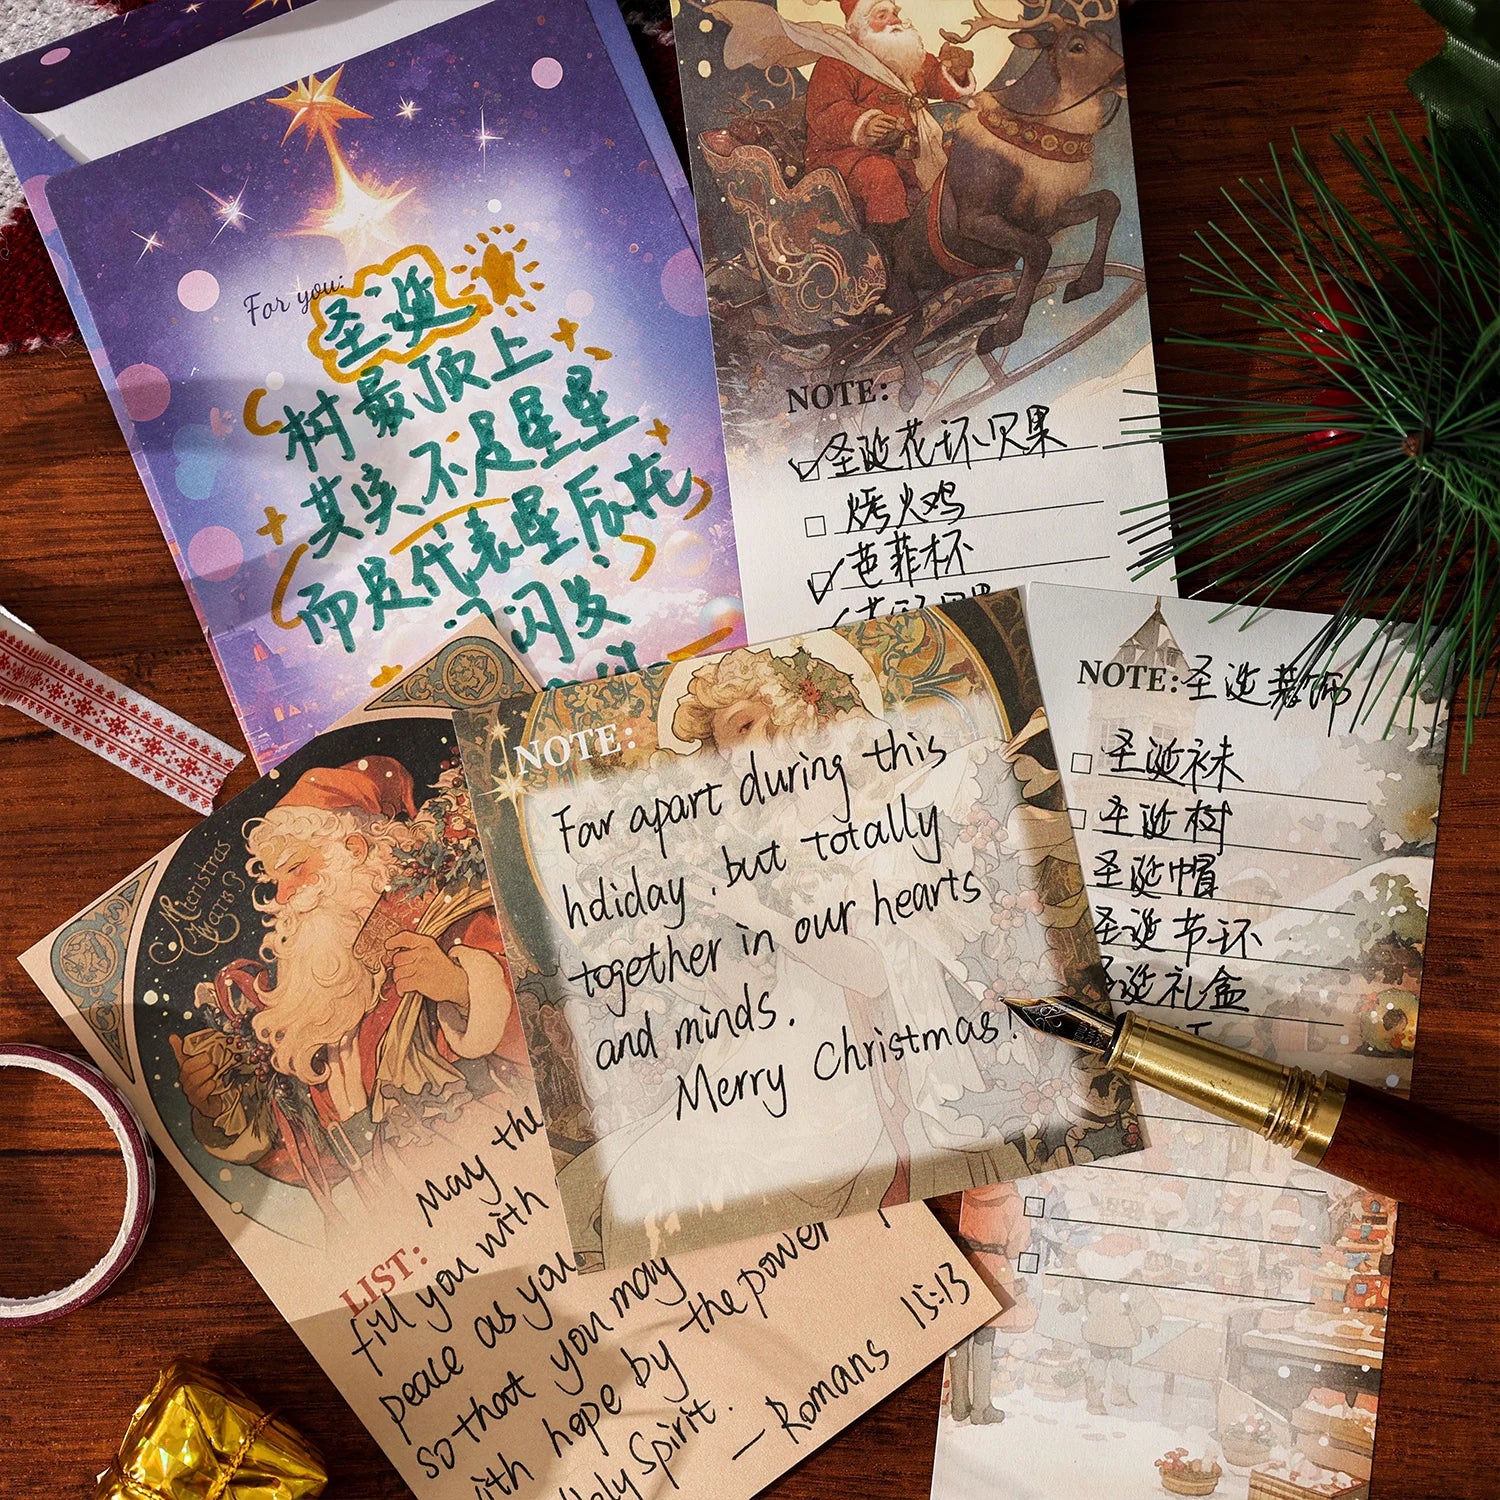 For you:
圣诞
树最顶上
其实不是星星
而是代表星辰在
闪闪发
NOTE:
圣诞花环贝果
烤火鸡
芭菲杯
NOTE:圣诞装饰
圣诞袜
圣诞树
圣诞帽
圣诞节环
圣诞礼盒
NOTE:
Far apart during this
holiday, but totally
together in our hearts
and minds.
Merry Christmas!
Merristmas
LIST:
May the
fill you with
peace as you
so that you may
with hope by the power
Holy Spirit.
— Romans 15:13